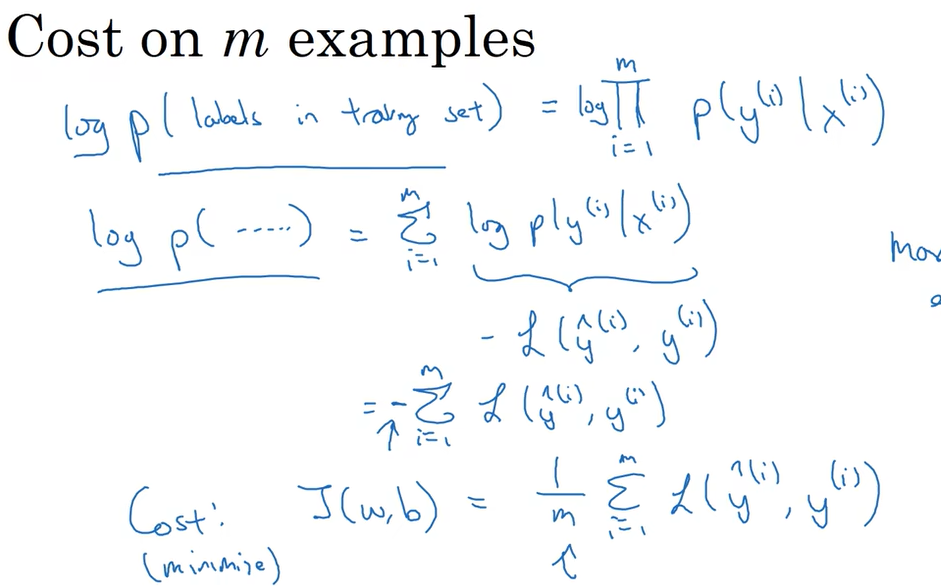 Cost on m examples
log p( labels in traing set) = log ∏_{i=1}^{m} p(y^{(i)} | x^{(i)})
log p( ----- ) = Σ_{i=1}^{m} log p(y^{(i)} | x^{(i)})
- ℒ(ŷ^{(i)}, y^{(i)})
= - Σ_{i=1}^{m} ℒ(ŷ^{(i)}, y^{(i)})
Cost: J(w,b) = 1/m Σ_{i=1}^{m} ℒ(ŷ^{(i)}, y^{(i)})
(minimize)